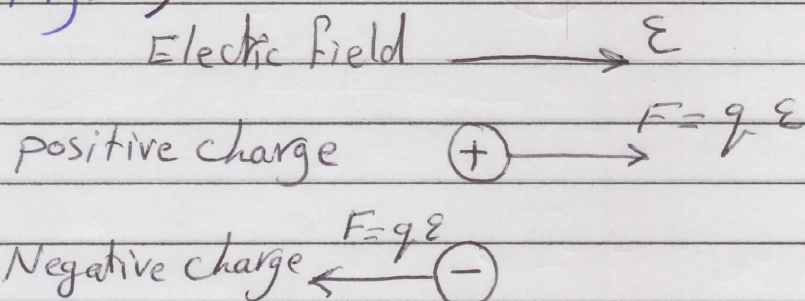 Electric field ε
positive charge + F = q ε
F = q ε
Negative charge −